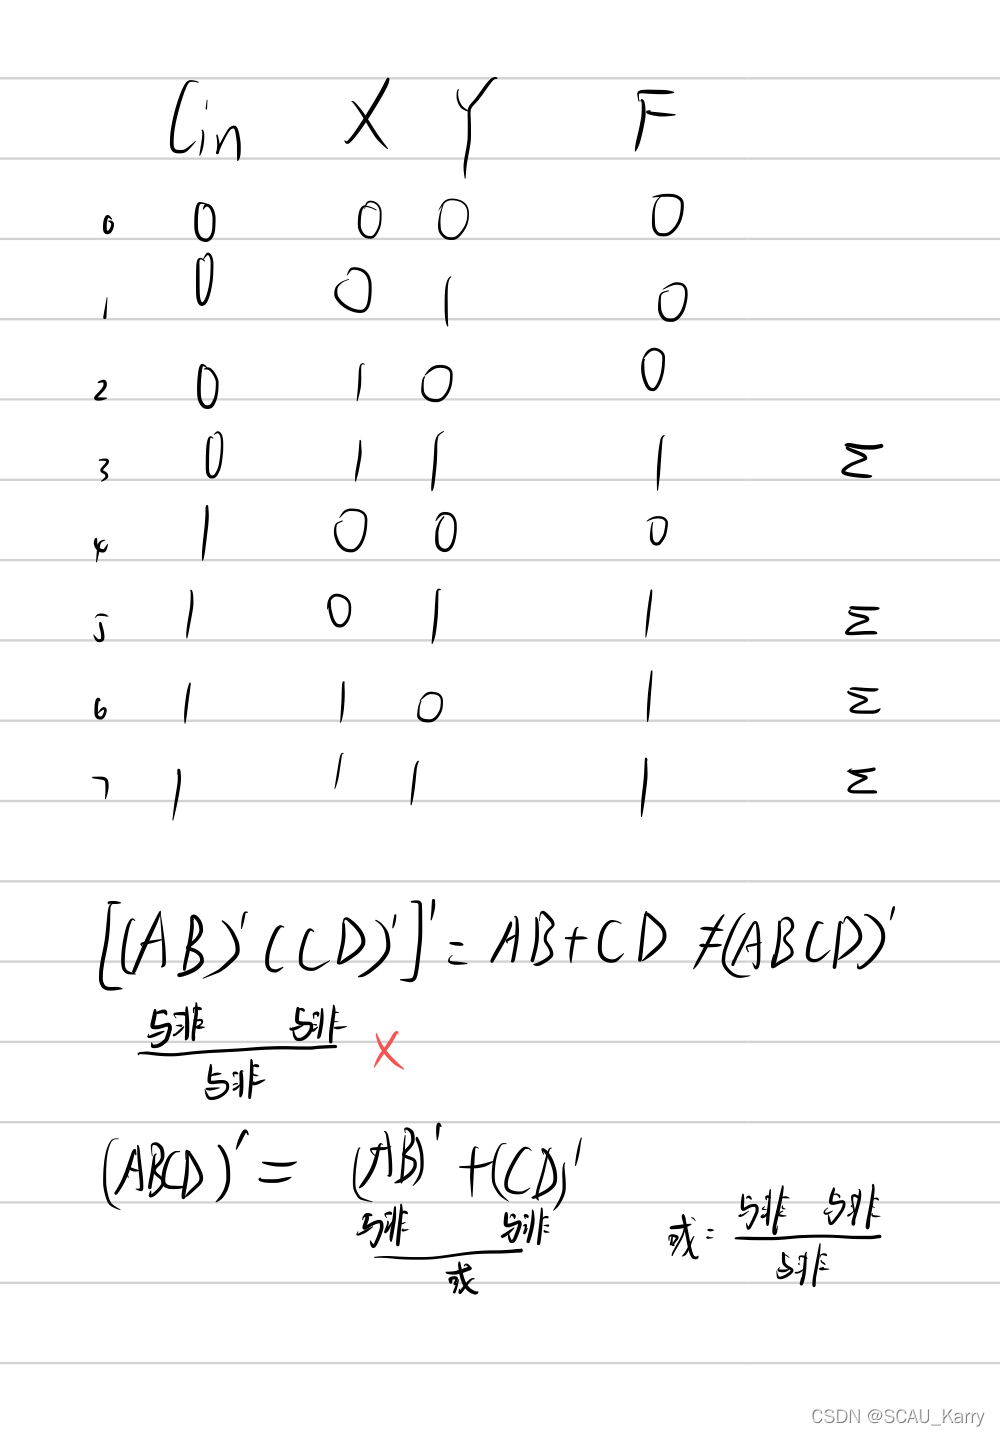 Cin X Y F
0 0 0 0 0
1 0 0 1 0
2 0 1 0 0
3 0 1 1 1 Σ
4 1 0 0 0
5 1 0 1 1 Σ
6 1 1 0 1 Σ
7 1 1 1 1 Σ
[(AB)'(CD)']' = AB+CD ≠(ABCD)'
与非 与非
与非 X
(ABCD)' = (AB)' +(CD)'
与非 与非
或
或: 与非 与非
与非
CSDN @SCAU_Karry